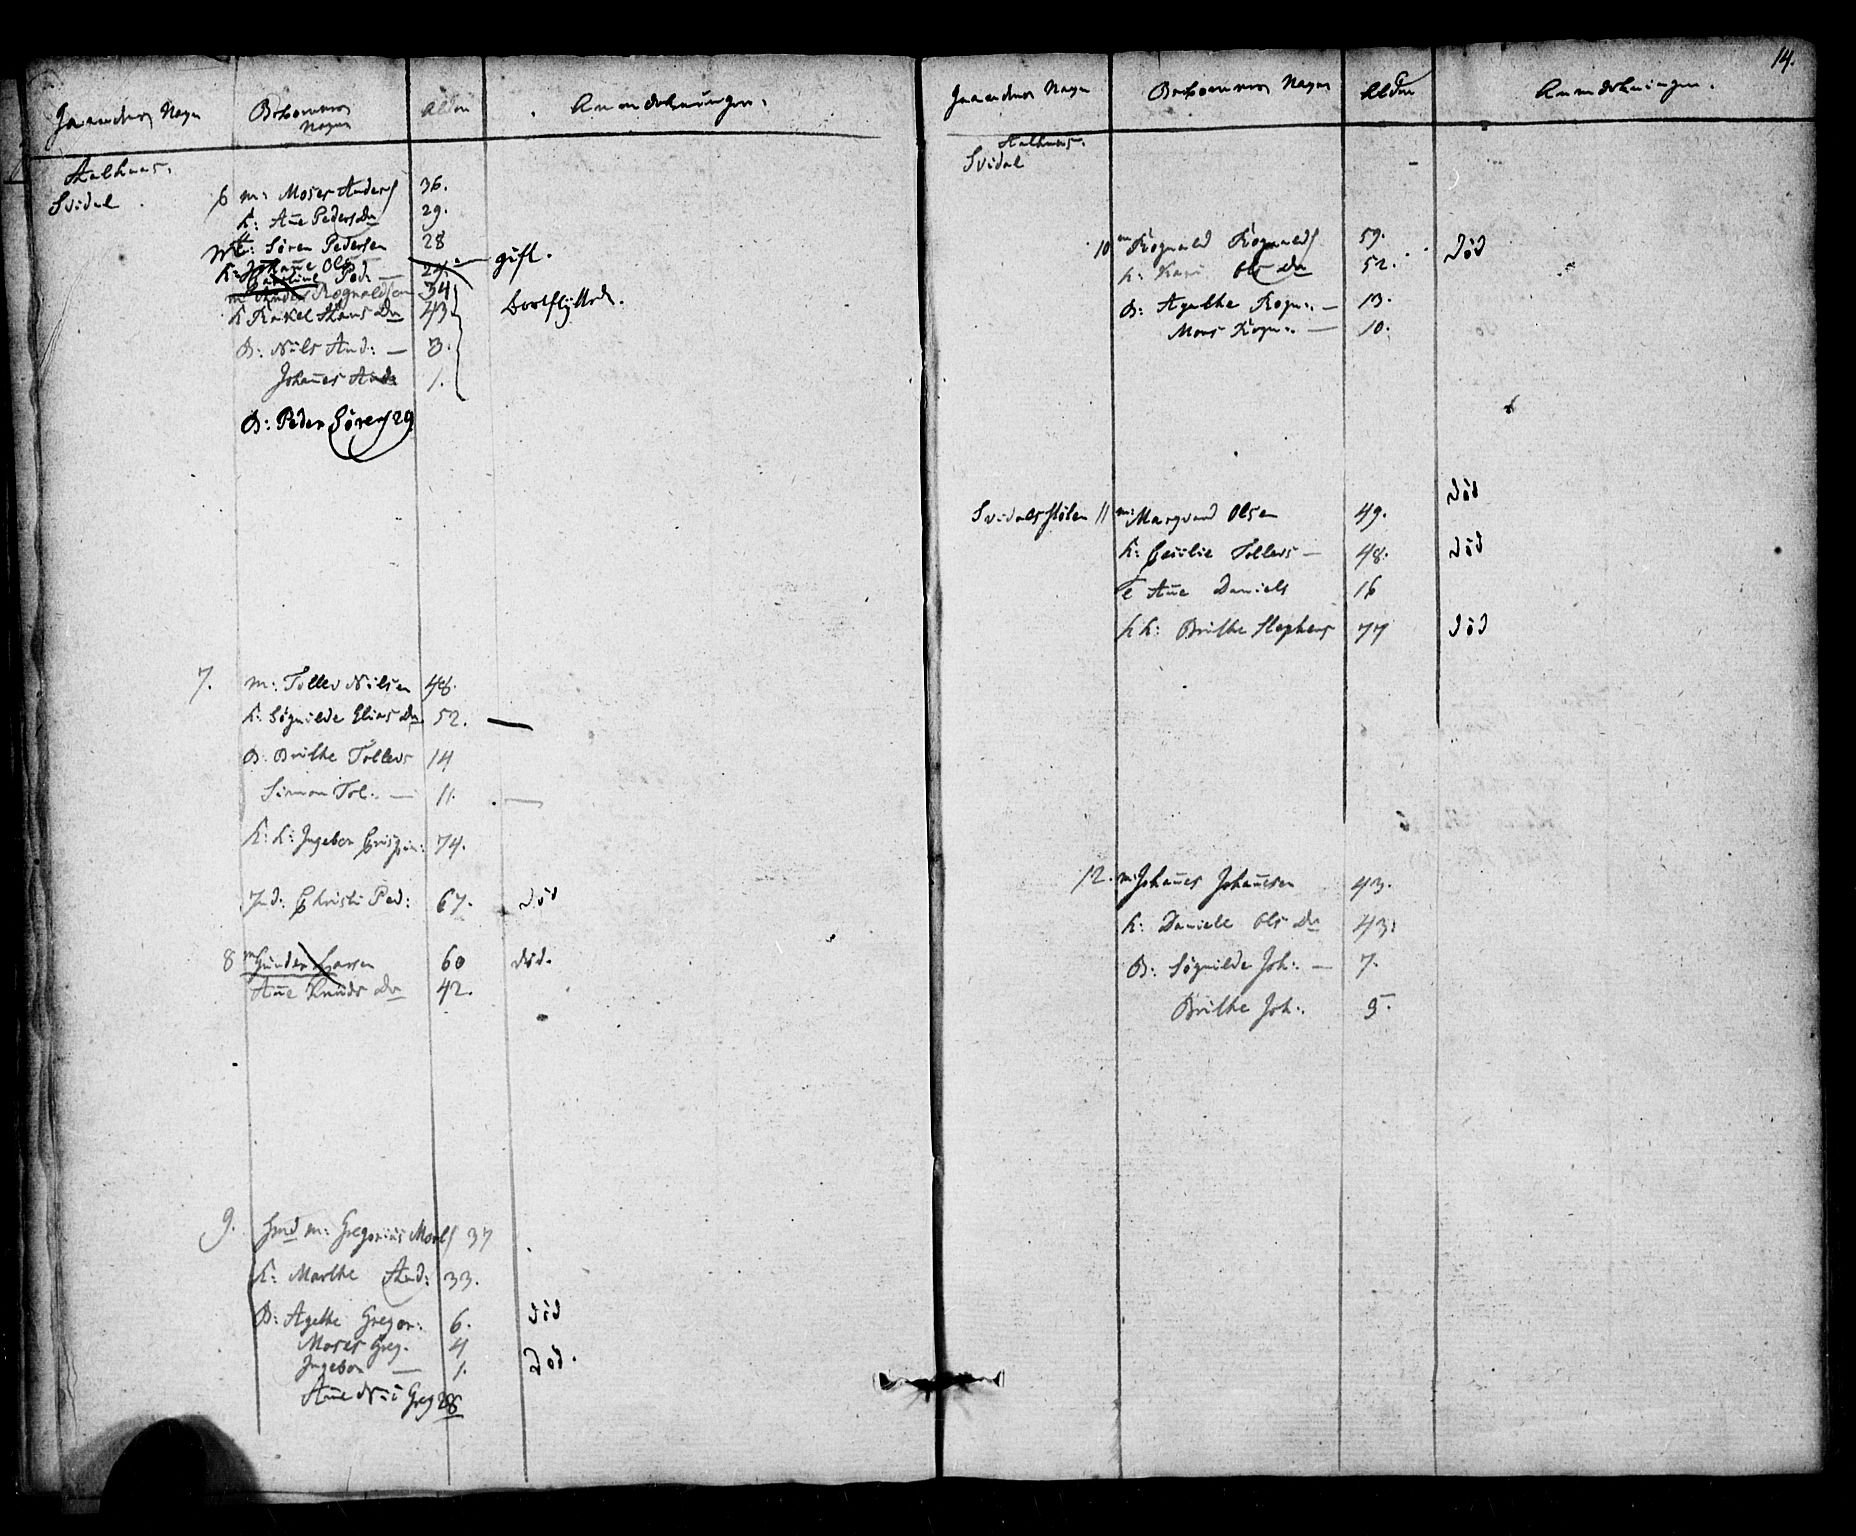 Gaardenes Navn
Beboernes
Navne
Alder
Anmærkninger.
Aalhuus.
Svidal
6 m: Moses Anders
36.
k: Añe Peders Dr
29.
m: Søren Pedersen
28
k: Johañe Ols —
24. gift.
Ped: —
m Anders Rognaldsen
34
k Rakel Hans Dr
43 bortflyttede.
B: Nils And: —
3.
Johañes And:
1.
B: Peder Sørens 29
7. m: Tollev Nilsen
48.
k: Søgnilde Elias Dr
52. —
B. Brithe Tollevs
14
Simon Tol: —
11. —
k: k: Ingebor Crispin:
74.
Ind: Christi Ped:
67. død
8 m Gunder Larsen
60 død.
Añe Knuds Dr
42.
9. Hmd m: Gregorius Mons 37
k: Marthe And:
33.
B: Agethe Gregor:
6. død
Moses Greg.
4
Ingebor —
1. død.
Añe Greg 28
14.
Gaardenes Navn
Beboernes Navne
Alder
Anmærkninger.
Aalhuus.
Svidal
10 m Rognald Rognalds
59. død
k: Kari Ols Dr
52.
B: Agathe Rogn: —
13.
Mons Rogn: —
10.
Svidalsstølen 11 m: Marqvard Olsen
49. død
k: Cecilie Tollevs —
48. død
T Añe Daniels
16
k k: Brithe Stephens
77 død
12. m: Johañes Johañesen
43.
k: Daniele Ols Dr
43.
B: Søgnilde Joh: —
7.
Brithe Joh:
5.